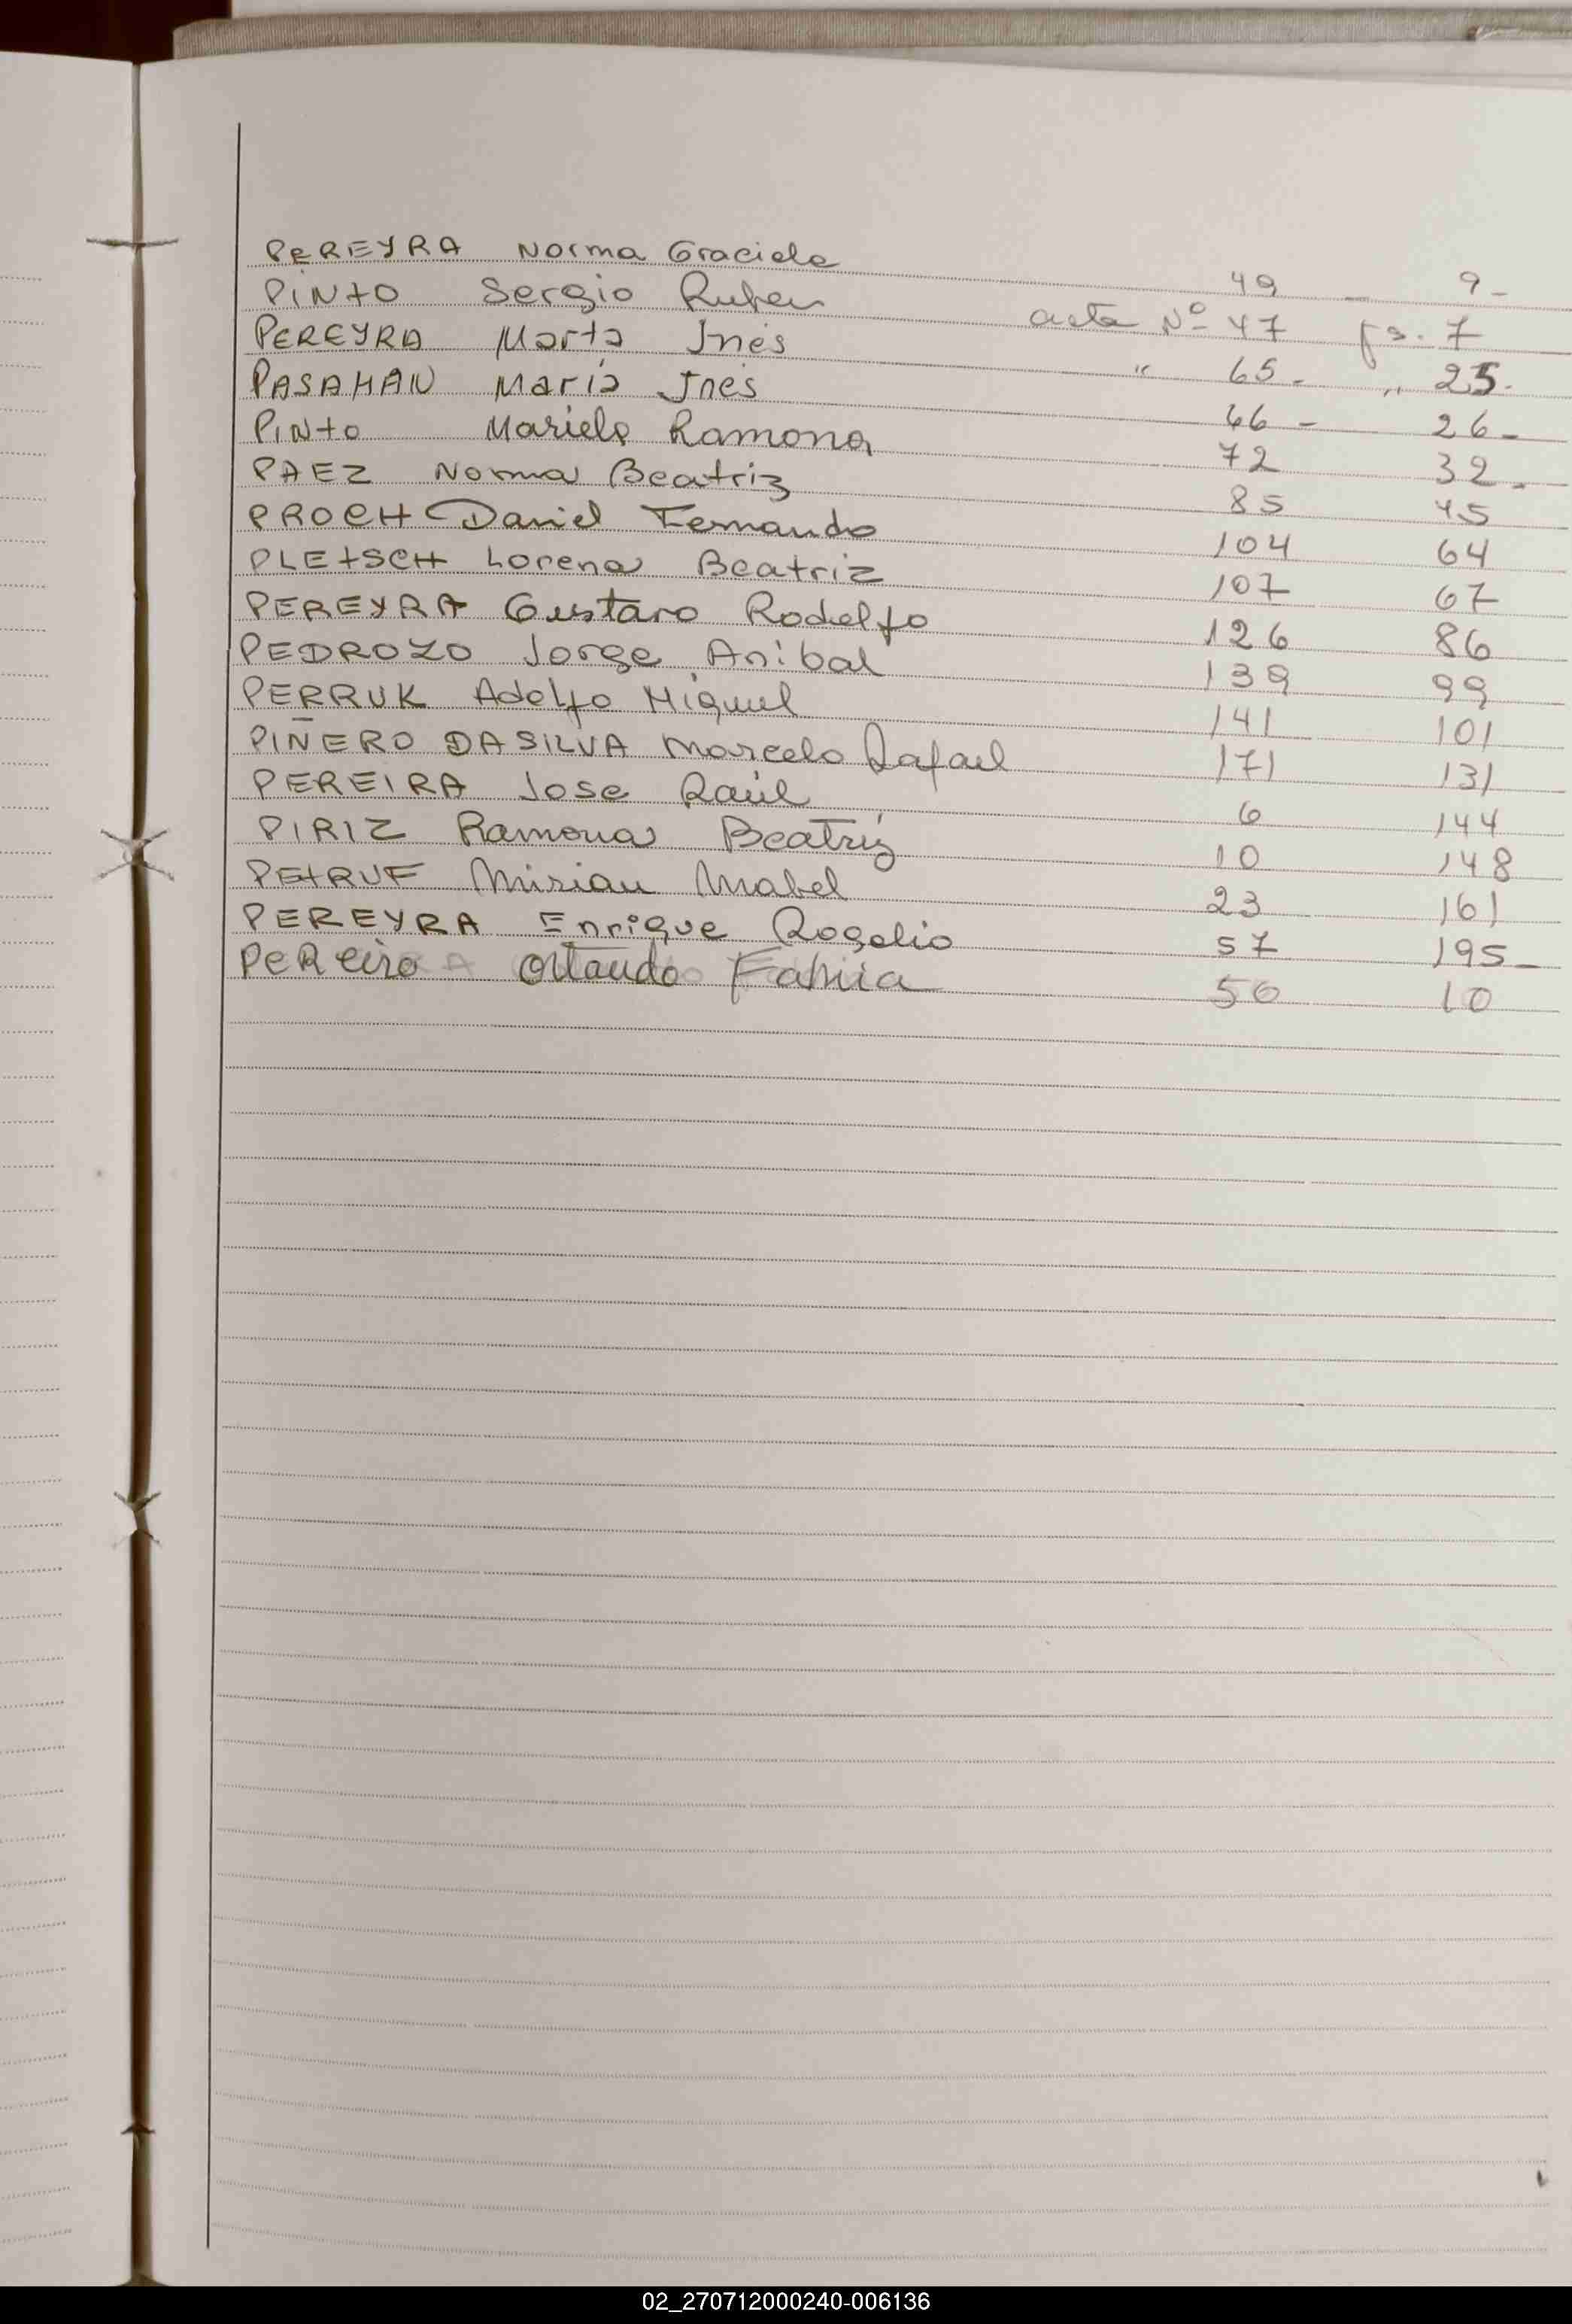 PEREYRA Norma Graciela 49 - 9 -
PINTO Sergio Ruben acta Nº 47 fs. 7
PEREYRA Marta Inés " 65 - " 25 -
PASAHAN María Inés 66 - 26 -
PINTO Mariela Ramona 72 32 -
PAEZ Norma Beatriz 85 45
PROCH Daniel Fernando 104 64
PLETSCH Lorena Beatriz 107 67
PEREYRA Gustavo Rodolfo 126 86
PEDROZO Jorge Anibal 139 99
PERRUK Adolfo Miguel 141 101
PIÑERO DASILVA Marcelo Rafael 171 131
PEREIRA Jose Raúl 6 144
PIRIZ Ramona Beatríz 10 148
PETRUF Mirian Mabel 23 161
PEREYRA Enrique Rogelio 57 195 -
PEReira Orlando 50 10
02_270712000240-006136